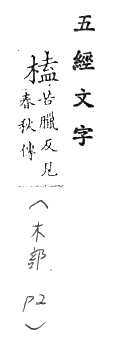 五經文字
榼苦臘反見
春秋傳
(木部 P2)